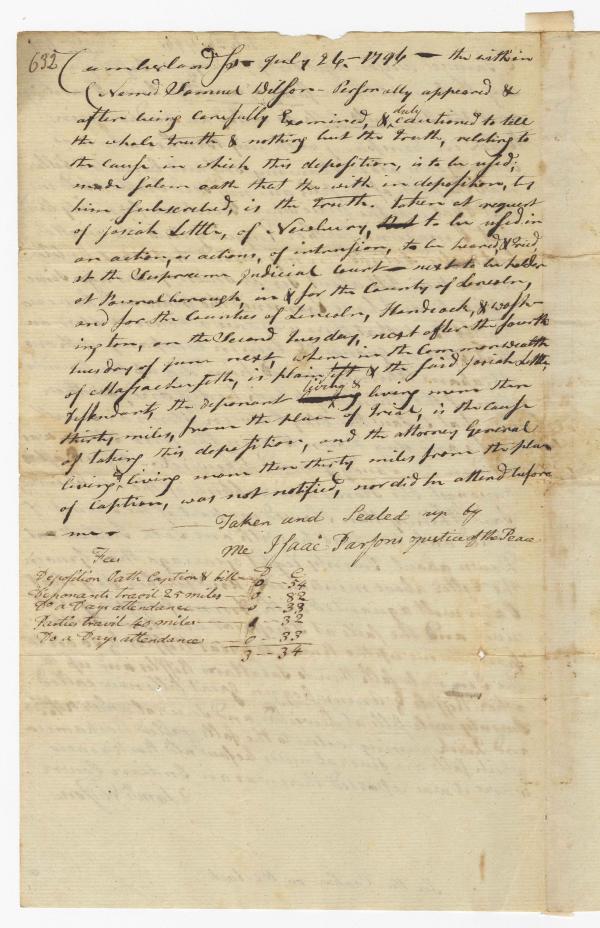 632
Cumberland Ss July 26, 1796 — the within
Named Samuel Wilson - Personally appeared &
after being Carefully Examined, & duly cautioned to tell
the whole truth & nothing but the truth, relating to
the Cause in which this deposition, is to be used;
made Solem oath that the with in deposition, by
him Subscribed, is the truth. taken at request
of Josiah Little, of Newbury, to be used in
an action, or actions, of intrusion, to be heard, & tried,
at the Supreme Judicial Court — next to be holden
at Pownalborough, in & for the County of Lincoln,
and for the Counties of Lincoln, Handcock, & Wash-
ington, on the Second tuesday, next after the fourth
tuesday of June next, where in the Common wealth
of Massachusetts, is plaintiff & the said Josiah Little,
Defendant, the deponant living & living more then
thirty miles, from the place of trial, is the Cause
of taking this deposition, and the attorney General
living & living more then thirty miles from the place
of Caption, was not notified, nor did he attend before
me -
Taken and Sealed up by
me Isaac Parsons Justice of the Peace
Fees
D C
Deposition Oath Caption & bill — 0 - 54
Deponants travil 25 miles — 0 - 82
Do a Days attendance 0 -- 33
Parties travil 40 miles — 1 - 32
Do a Days attendance — 0 -- 33
3 -- 34